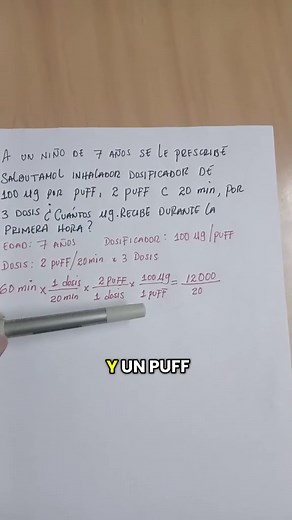 A UN NIÑO DE 7 AÑOS SE LE PRESCRIBE
SALBUTAMOL INHALADOR DOSIFICADOR DE
100 µg POR PUFF, 2 PUFF C 20 min, POR
3 DOSIS ¿CUÁNTOS µg. RECIBE DURANTE LA
PRIMERA HORA?
EDAD: 7 AÑOS DOSIFICADOR: 100 µg/PUFF
DOSIS: 2 PUFF/20min * 3 DOSIS
60 min x 1 dosis/20 min x 2 PUFF/1 dosis x 100 µg/1 PUFF = 12000/20
Y UN PUFF